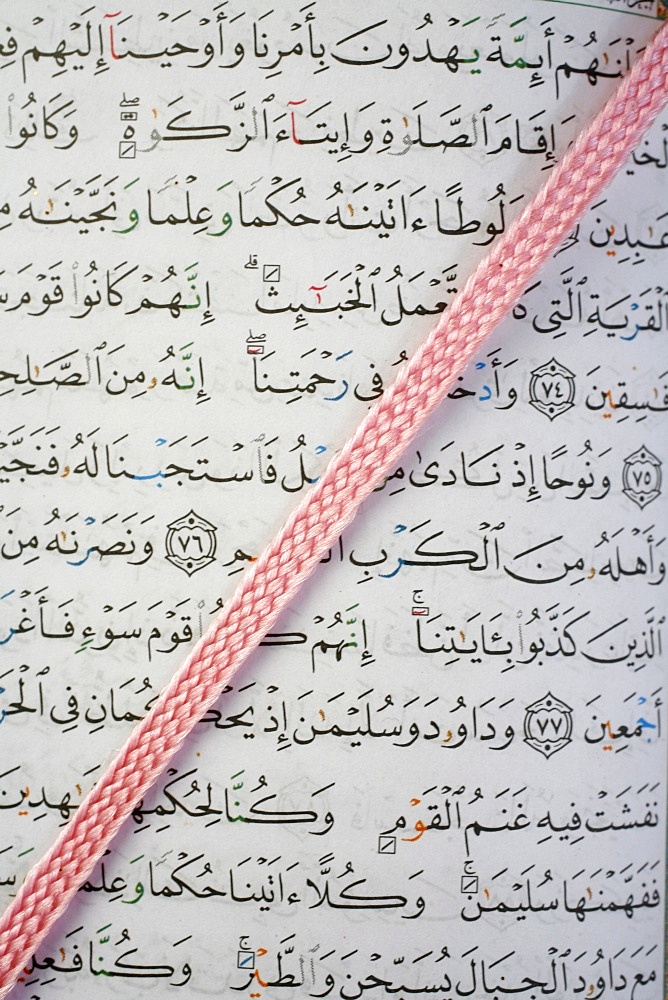 أَئِمَّةً يَهْدُونَ بِأَمْرِنَا وَأَوْحَيْنَآ إِلَيْهِمْ
إِقَامَ ٱلصَّلَوٰةِ وَإِيتَآءَ ٱلزَّكَوٰةِ ۖ وَكَانُوا۟
عَٰبِدِينَ لُوطًا ءَاتَيْنَٰهُ حُكْمًا وَعِلْمًا وَنَجَّيْنَٰهُ
ٱلْقَرْيَةِ ٱلَّتِى تَّعْمَلُ ٱلْخَبَٰٓئِثَ ۗ إِنَّهُمْ كَانُوا۟ قَوْمَ
فَٰسِقِينَ ٧٤ فِى رَحْمَتِنَآ ۖ إِنَّهُۥ مِنَ
٧٥ وَنُوحًا إِذْ نَادَىٰ فَٱسْتَجَبْنَا لَهُۥ
وَأَهْلَهُۥ مِنَ ٱلْكَرْبِ ٧٦ وَنَصَرْنَٰهُ مِنَ
ٱلَّذِينَ كَذَّبُوا۟ بِـَٔايَٰتِنَآ ۚ إِنَّهُمْ قَوْمَ سَوْءٍ
أَجْمَعِينَ ٧٧ وَدَاوُۥدَ وَسُلَيْمَٰنَ إِذْ فِى
نَفَشَتْ فِيهِ غَنَمُ ٱلْقَوْمِ وَكُنَّا
فَفَهَّمْنَٰهَا سُلَيْمَٰنَ ۚ وَكُلًّا ءَاتَيْنَا حُكْمًا وَعِلْمًا
مَعَ دَاوُۥدَ ٱلْجِبَالَ يُسَبِّحْنَ وَٱلطَّيْرَ ۚ وَكُنَّا